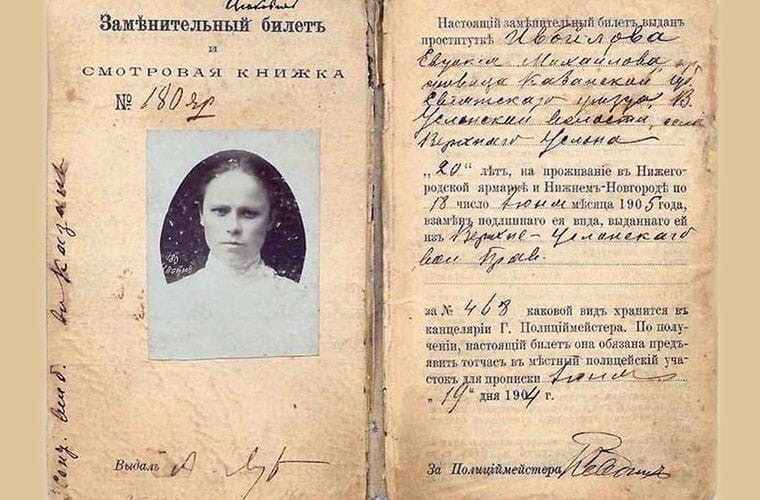 Замѣнительный билетъ
и
СМОТРОВАЯ КНИЖКА
№ 180 яр
Выдалъ
въ Казань
Настоящій замѣнительный билетъ выданъ
проституткѣ Ивойлова
Евдокія Михайлова,
Казанской губ
Свіяжскаго уѣзда, В.
Услонской волости, села
Верхняго Услона
„20“ лѣтъ, на проживаніе въ Нижего-
родской ярмаркѣ и Нижнемъ-Новгородѣ по
18 число Іюня мѣсяца 1905 года,
взамѣнъ подлиннаго ея вида, выданнаго ей
изъ Верхне-Услонскаго
вол Прав.
за № 468 каковой видъ хранится въ
канцеляріи Г. Полиціймейстера. По полу-
ченіи, настоящій билетъ она обязана предъ-
явить тотчасъ въ мѣстный полицейскій уча-
стокъ для прописки Іюня
„19“ дня 1904 г.
За Полиціймейстера